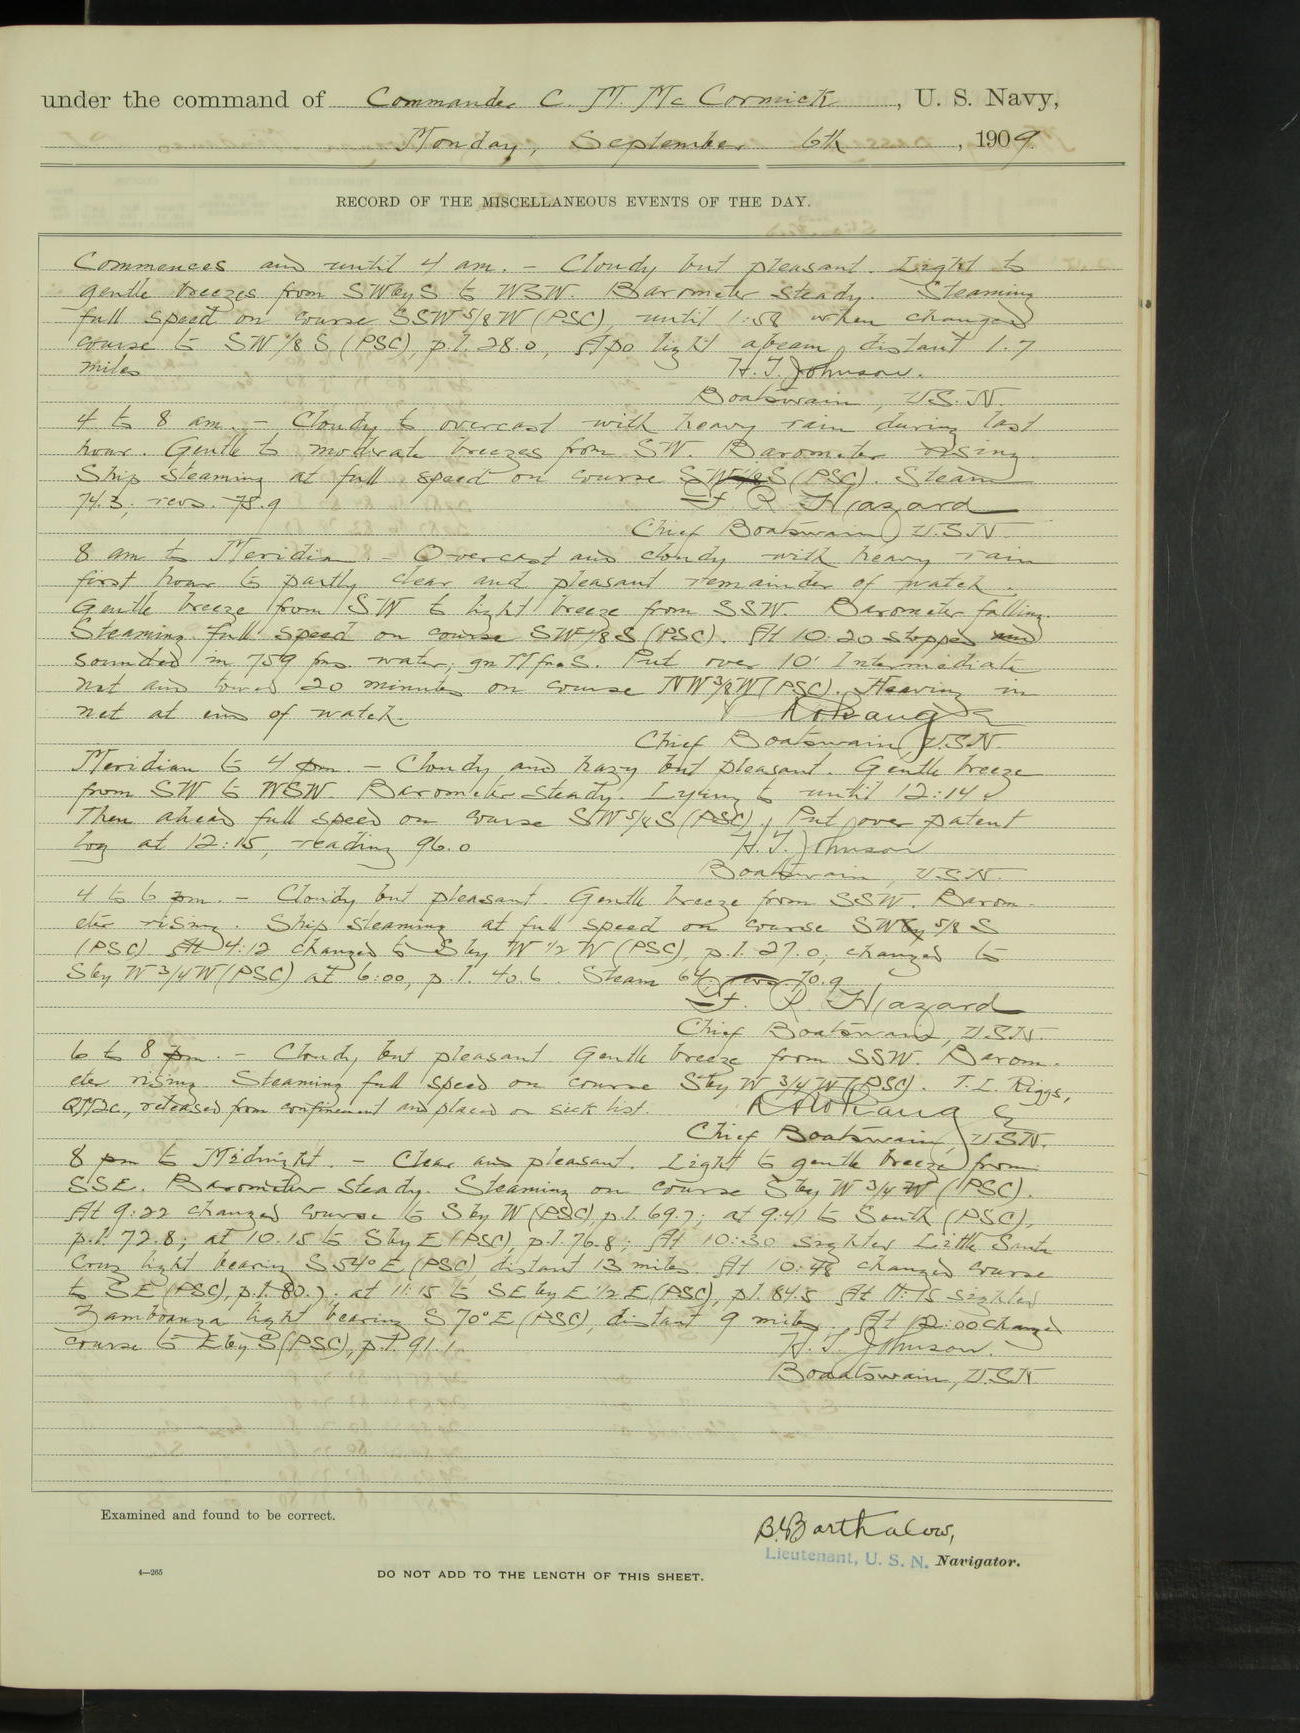 under the command of Commander C. M. McCormick, U. S. Navy,
Monday, September 6th, 1909.
RECORD OF THE MISCELLANEOUS EVENTS OF THE DAY.
Commences and until 4 am. - Cloudy but pleasant. Light to
gentle breezes from SWbyS to WSW. Barometer steady. Steaming
full speed on course SSW 5/8 W (PSC), until 1:58 when changed
course to SW 1/8 S (PSC), p.l. 28.0, Apo light abeam, distant 1.7
miles
H. T. Johnson.
Boatswain, U.S.N.
4 to 8 am. - Cloudy to overcast with heavy rain during last
hour. Gentle to moderate breezes from SW. Barometer rising.
Ship steaming at full speed on course SW 1/8 S (PSC). Steam
74.3; revs. 78.9
F. R. Hazard
Chief Boatswain U.S.N.
8 am to Meridian. - Overcast and cloudy with heavy rain
first hour to partly clear and pleasant remainder of watch.
Gentle breeze from SW to light breeze from SSW. Barometer falling.
Steaming full speed on course SW 1/8 S (PSC). At 10:20 stopped and
sounded in 759 fms. water; gn M fne S. Put over 10' Intermediate
net and towed 20 minutes on course NW 3/8 W (PSC). Heaving in
net at end of watch.
Chief Boatswain, U.S.N.
Meridian to 4 pm. - Cloudy and hazy but pleasant. Gentle breeze
from SW to WSW. Barometer steady. Lying to until 12:14
Then ahead full speed on course SW 5/8 S (PSC), Put over patent
log at 12:15, reading 96.0
H. T. Johnson
Boatswain, U.S.N.
4 to 6 pm. - Cloudy but pleasant. Gentle breeze from SSW. Barom-
eter rising. Ship steaming at full speed on course SW 5/8 S
(PSC) At 4:12 changed to S by W 1/2 W (PSC), p.l. 27.0, changed to
S by W 3/4 W (PSC) at 6:00, p.l. 40.6. Steam 64, revs 70.9
F. R. Hazard
Chief Boatswain, U.S.N.
6 to 8 pm. - Cloudy but pleasant Gentle breeze from SSW. Barom-
eter rising. Steaming full speed on course S by W 3/4 W (PSC). T. L. Riggs,
QM2c., released from confinement and placed on sick list.
Chief Boatswain, U.S.N.
8 pm to Midnight. - Clear and pleasant. Light to gentle breeze from
SSE. Barometer steady. Steaming on course S by W 3/4 W (PSC).
At 9:22 changed course to S by W (PSC), p.l. 69.7; at 9:41 to South (PSC),
p.l. 72.8; at 10.15 to S by E (PSC), p.l. 76.8; At 10:30 sighted Little Santa
Cruz light bearing S 54° E (PSC) distant 13 miles. At 10:48 changed course
to SE (PSC), p.l. 80.7. at 11:15 to SE by E 1/2 E (PSC), p.l. 84.5 At 11:15 sighted
Zamboanga light bearing S 70° E (PSC), distant 9 miles. At 12:00 changed
course to E by S (PSC), p.l. 91.1.
H. T. Johnson.
Boatswain, U.S.N
Examined and found to be correct.
B. Barthalow,
Lieutenant, U. S. N. Navigator.
4—265
DO NOT ADD TO THE LENGTH OF THIS SHEET.